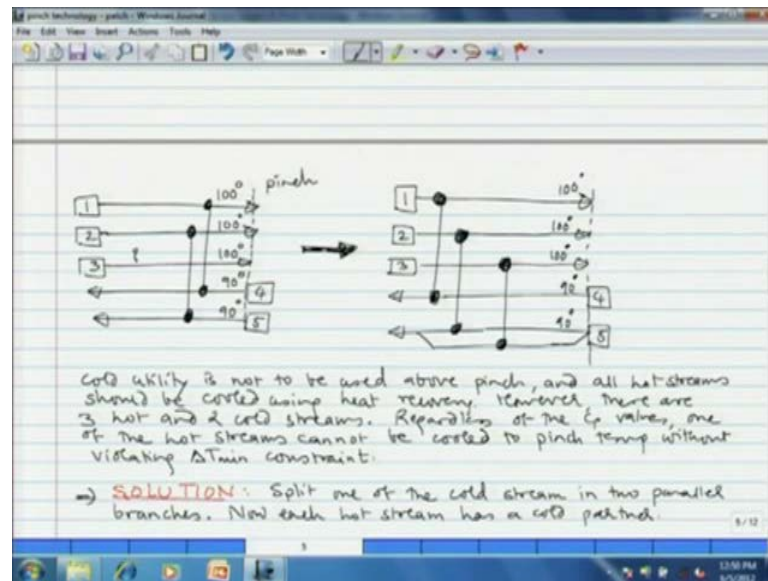 pinch technology - patch - Windows Journal
File Edit View Insert Actions Tools Help
Page Width
pinch
1 100°
2 100°
3 ? 100°
90° 4
90° 5
1 100°
2 100°
3 100°
90° 4
90° 5
cold utility is not to be used above pinch, and all hot streams
should be cooled using heat recovery. However there are
3 hot and 2 cold streams. Regardless of the Cp values, one
of the hot streams cannot be cooled to pinch temp without
violating ΔTmin constraint.
⇒ SOLUTION: Split one of the cold stream in two parallel
branches. Now each hot stream has a cold partner.
9/12
3
12:50 PM
6/5/2012